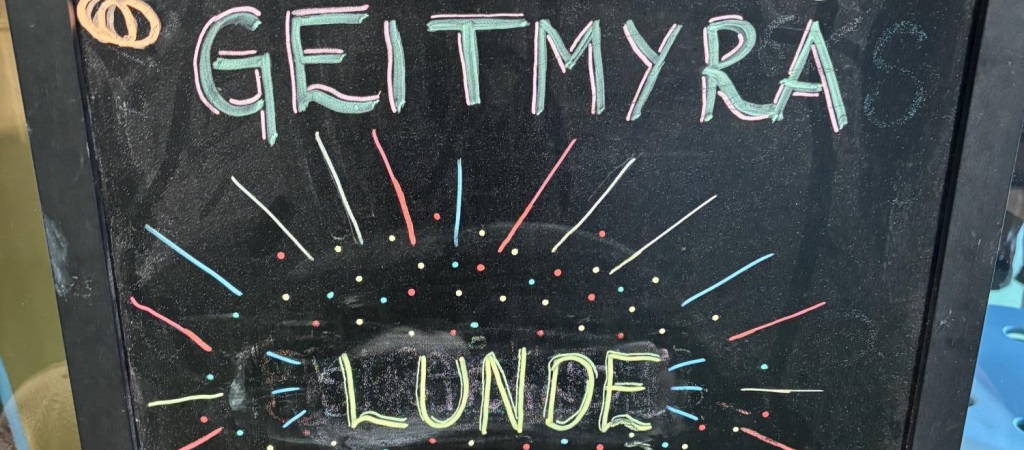 GEITMYRA
LUNDE